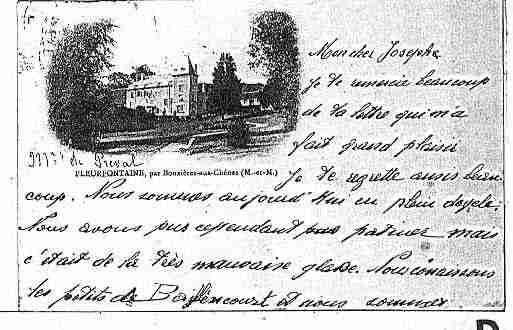 Mon cher Josephe
Je te remercie beaucoup
de ta lettre qui m'a
fait grand plaisir
FLEURFONTAINE, par Bouxières-aux-Chênes (M.-et-M.)
Je te regrette aussi beau
coup. Nous sommes aujourd'hui en plein
Nous avons pus cependant patiner mais
c'était de la très mauvaise glace. Nous connaissons
les petits de et nous sommes